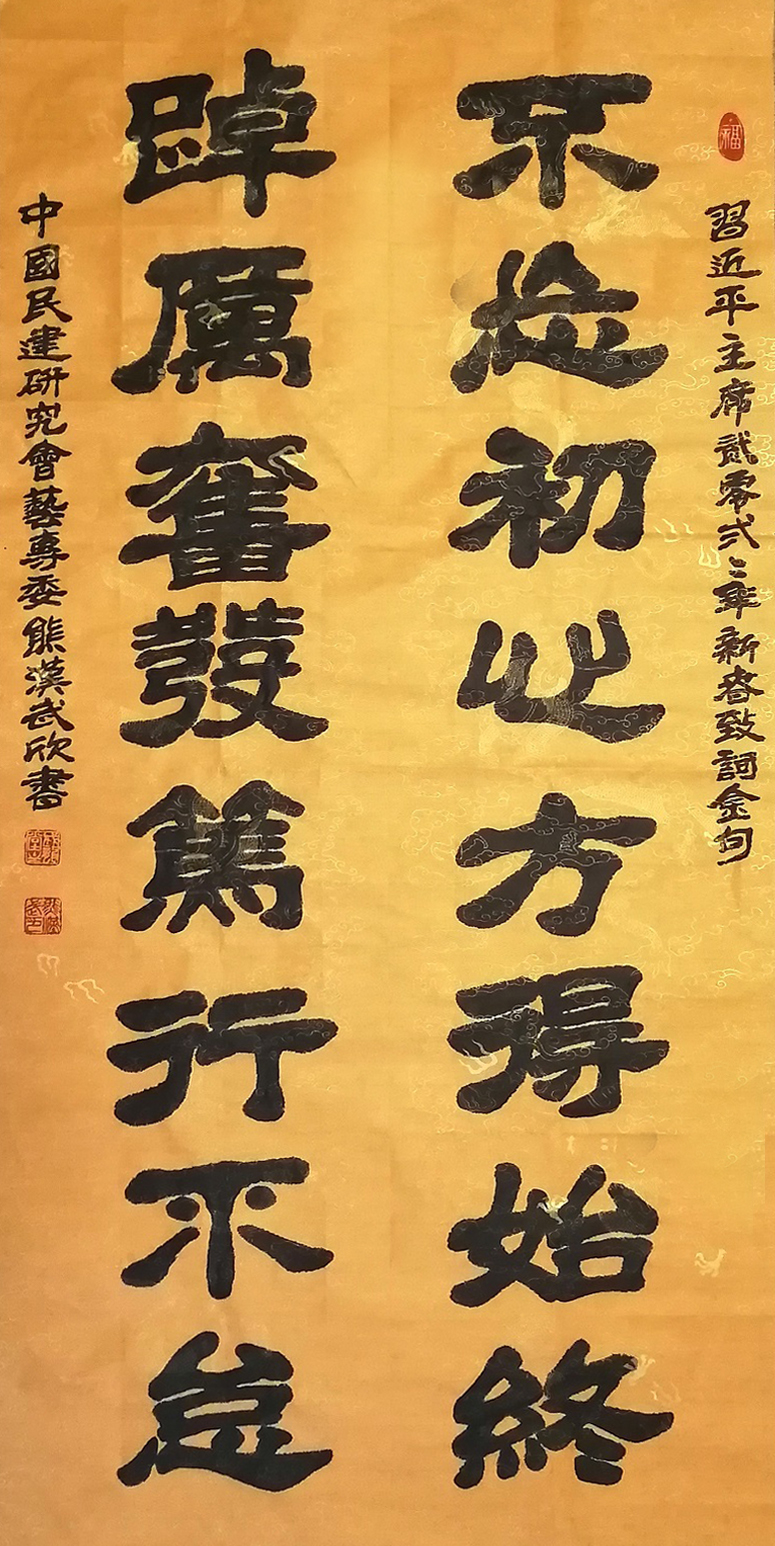 福
習近平主席貳零弍二年新春致詞金句
不忘初心方得始終
踔厲奮發篤行不怠
中國民建研究會藝專委熊漢武欣書